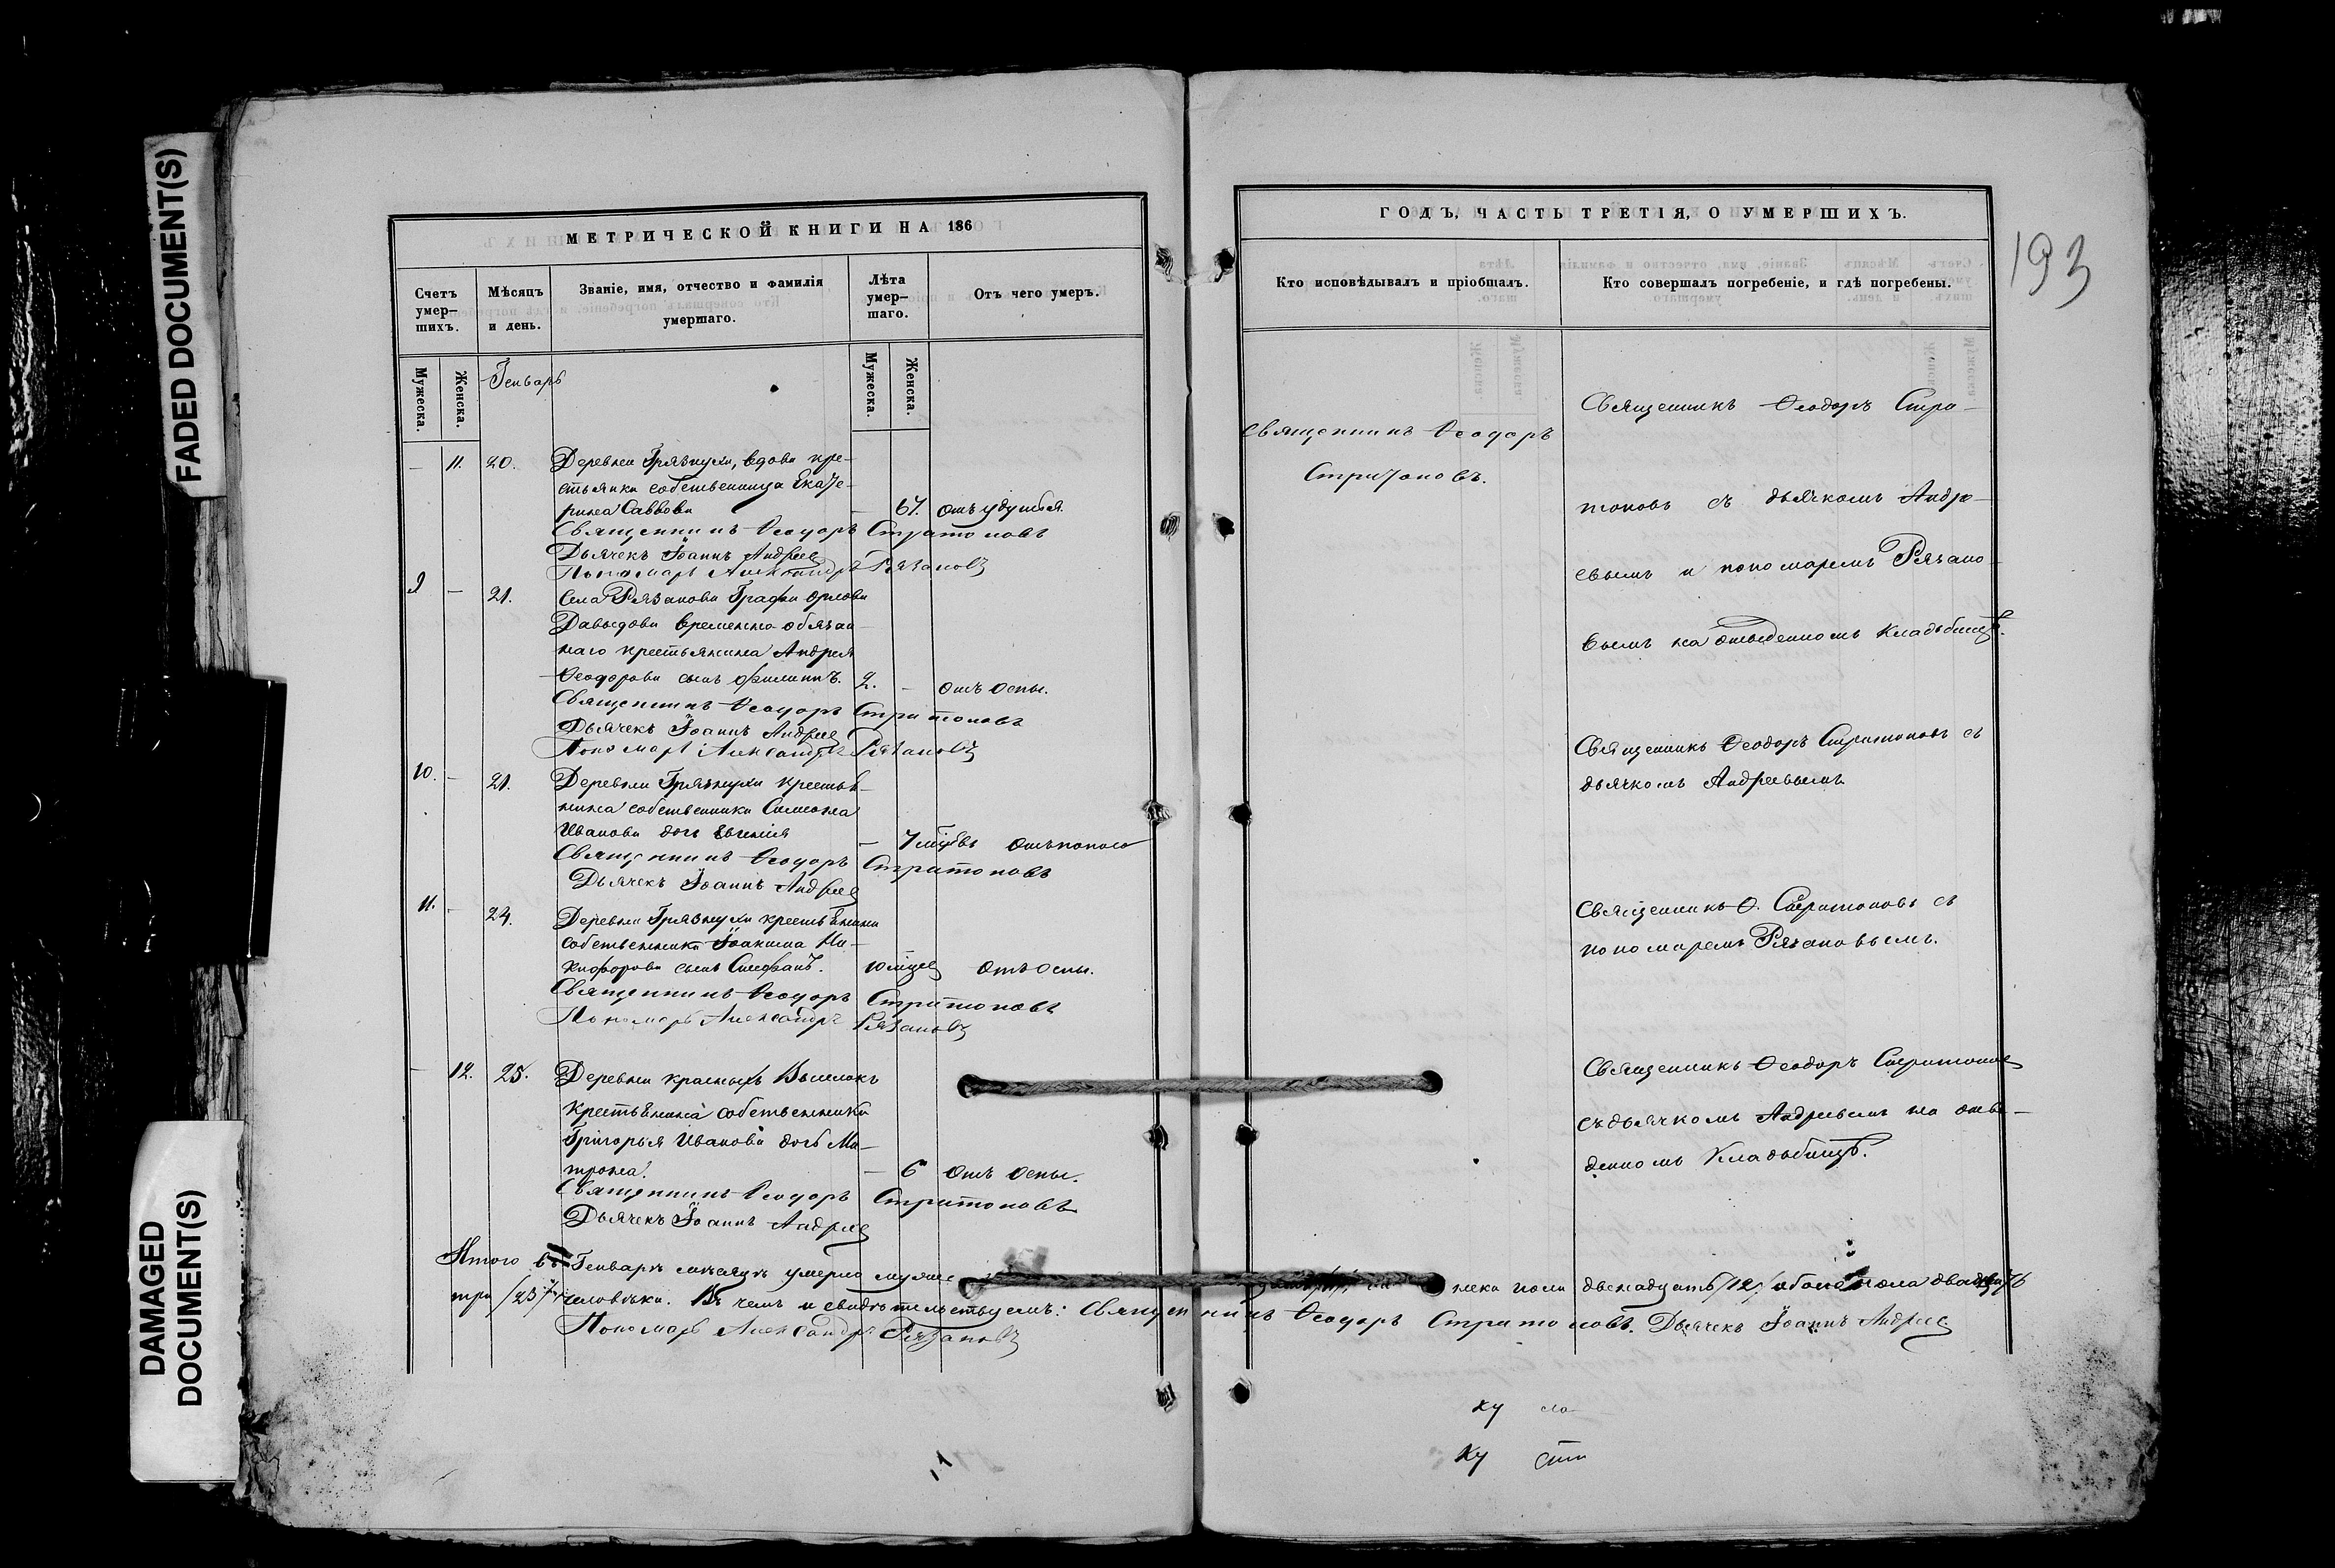 FADED DOCUMENT(S)
DAMAGED
DOCUMENT(S)
МЕТРИЧЕСКОЙ КНИГИ НА 186
Счетъ умер-шихъ.
Мѣсяцъ и день.
Званіе, имя, отчество и фамилія умершаго.
Лѣта умер-шаго.
Отъ чего умеръ.
Мужеска.
Женска.
Генварь
Мужеска.
Женска.
– 11. 20. Деревни Грязнухи, вдова кре-
стьянка собственница Екате-
рина Саввова – 67. отъ удушья
Священникъ Ѳеодоръ Стратоновъ
Дьячекъ Іоаннъ Андреев
Пономарь Александръ Рязановъ
9 – 21. Села Рязанова Графа Орлова
Давыдова временно-обязан-
наго крестьянина Андрея
Ѳеодорова сынъ Филиппъ. 2. – отъ оспы.
Священникъ Ѳеодоръ Стратоновъ
Дьячекъ Іоаннъ Андреев
Пономарь Александръ Рязановъ
10. – 21. Деревни Грязнухи крестья-
нина собственника Симеона
Иванова дочь Евгенія – 7 отъ поноса
Священникъ Ѳеодоръ Стратоновъ
Дьячекъ Іоаннъ Андреев
11. – 24. Деревни Грязнухи крестьянина
собственника Іоакима Ни-
кифорова сынъ Стефанъ. 10 отъ оспы.
Священникъ Ѳеодоръ Стратоновъ
Пономарь Александръ Рязановъ
– 12. 25. Деревни красныхъ Выселокъ
крестьянина собственника
Григорья Иванова дочь Ма-
трона. – 6 отъ оспы.
Священникъ Ѳеодоръ Стратоновъ
Дьячекъ Іоаннъ Андреев
Итого въ Генварѣ мѣсяцѣ умерло муже
три /23/ человѣка. Въ чемъ и свидѣтельствуемъ: Священникъ Ѳеодоръ Стратоновъ. Дьячекъ Іоаннъ Андреев
Пономарь Александръ Рязановъ
ГОДЪ, ЧАСТЬ ТРЕТІЯ, О УМЕРШИХЪ.
193
Кто исповѣдывалъ и пріобщалъ.
Кто совершалъ погребеніе, и гдѣ погребены.
Священникъ Ѳеодоръ
Стратоновъ.
Священникъ Ѳеодоръ Стра-
тоновъ съ дьячкомъ Андре-
евымъ и пономаремъ Рязано-
вымъ на отведенномъ кладбищѣ.
Священникъ Ѳеодоръ Стратоновъ съ
дьячкомъ Андреевымъ
Священникъ Ѳ. Стратоновъ съ
пономаремъ Рязановымъ.
Священникъ Ѳеодоръ Стратонов
съ дьячкомъ Андреевымъ на отве-
денномъ Кладбищѣ.
нска пола двенадцать /12/ обоего пола двадцать
ку
ку